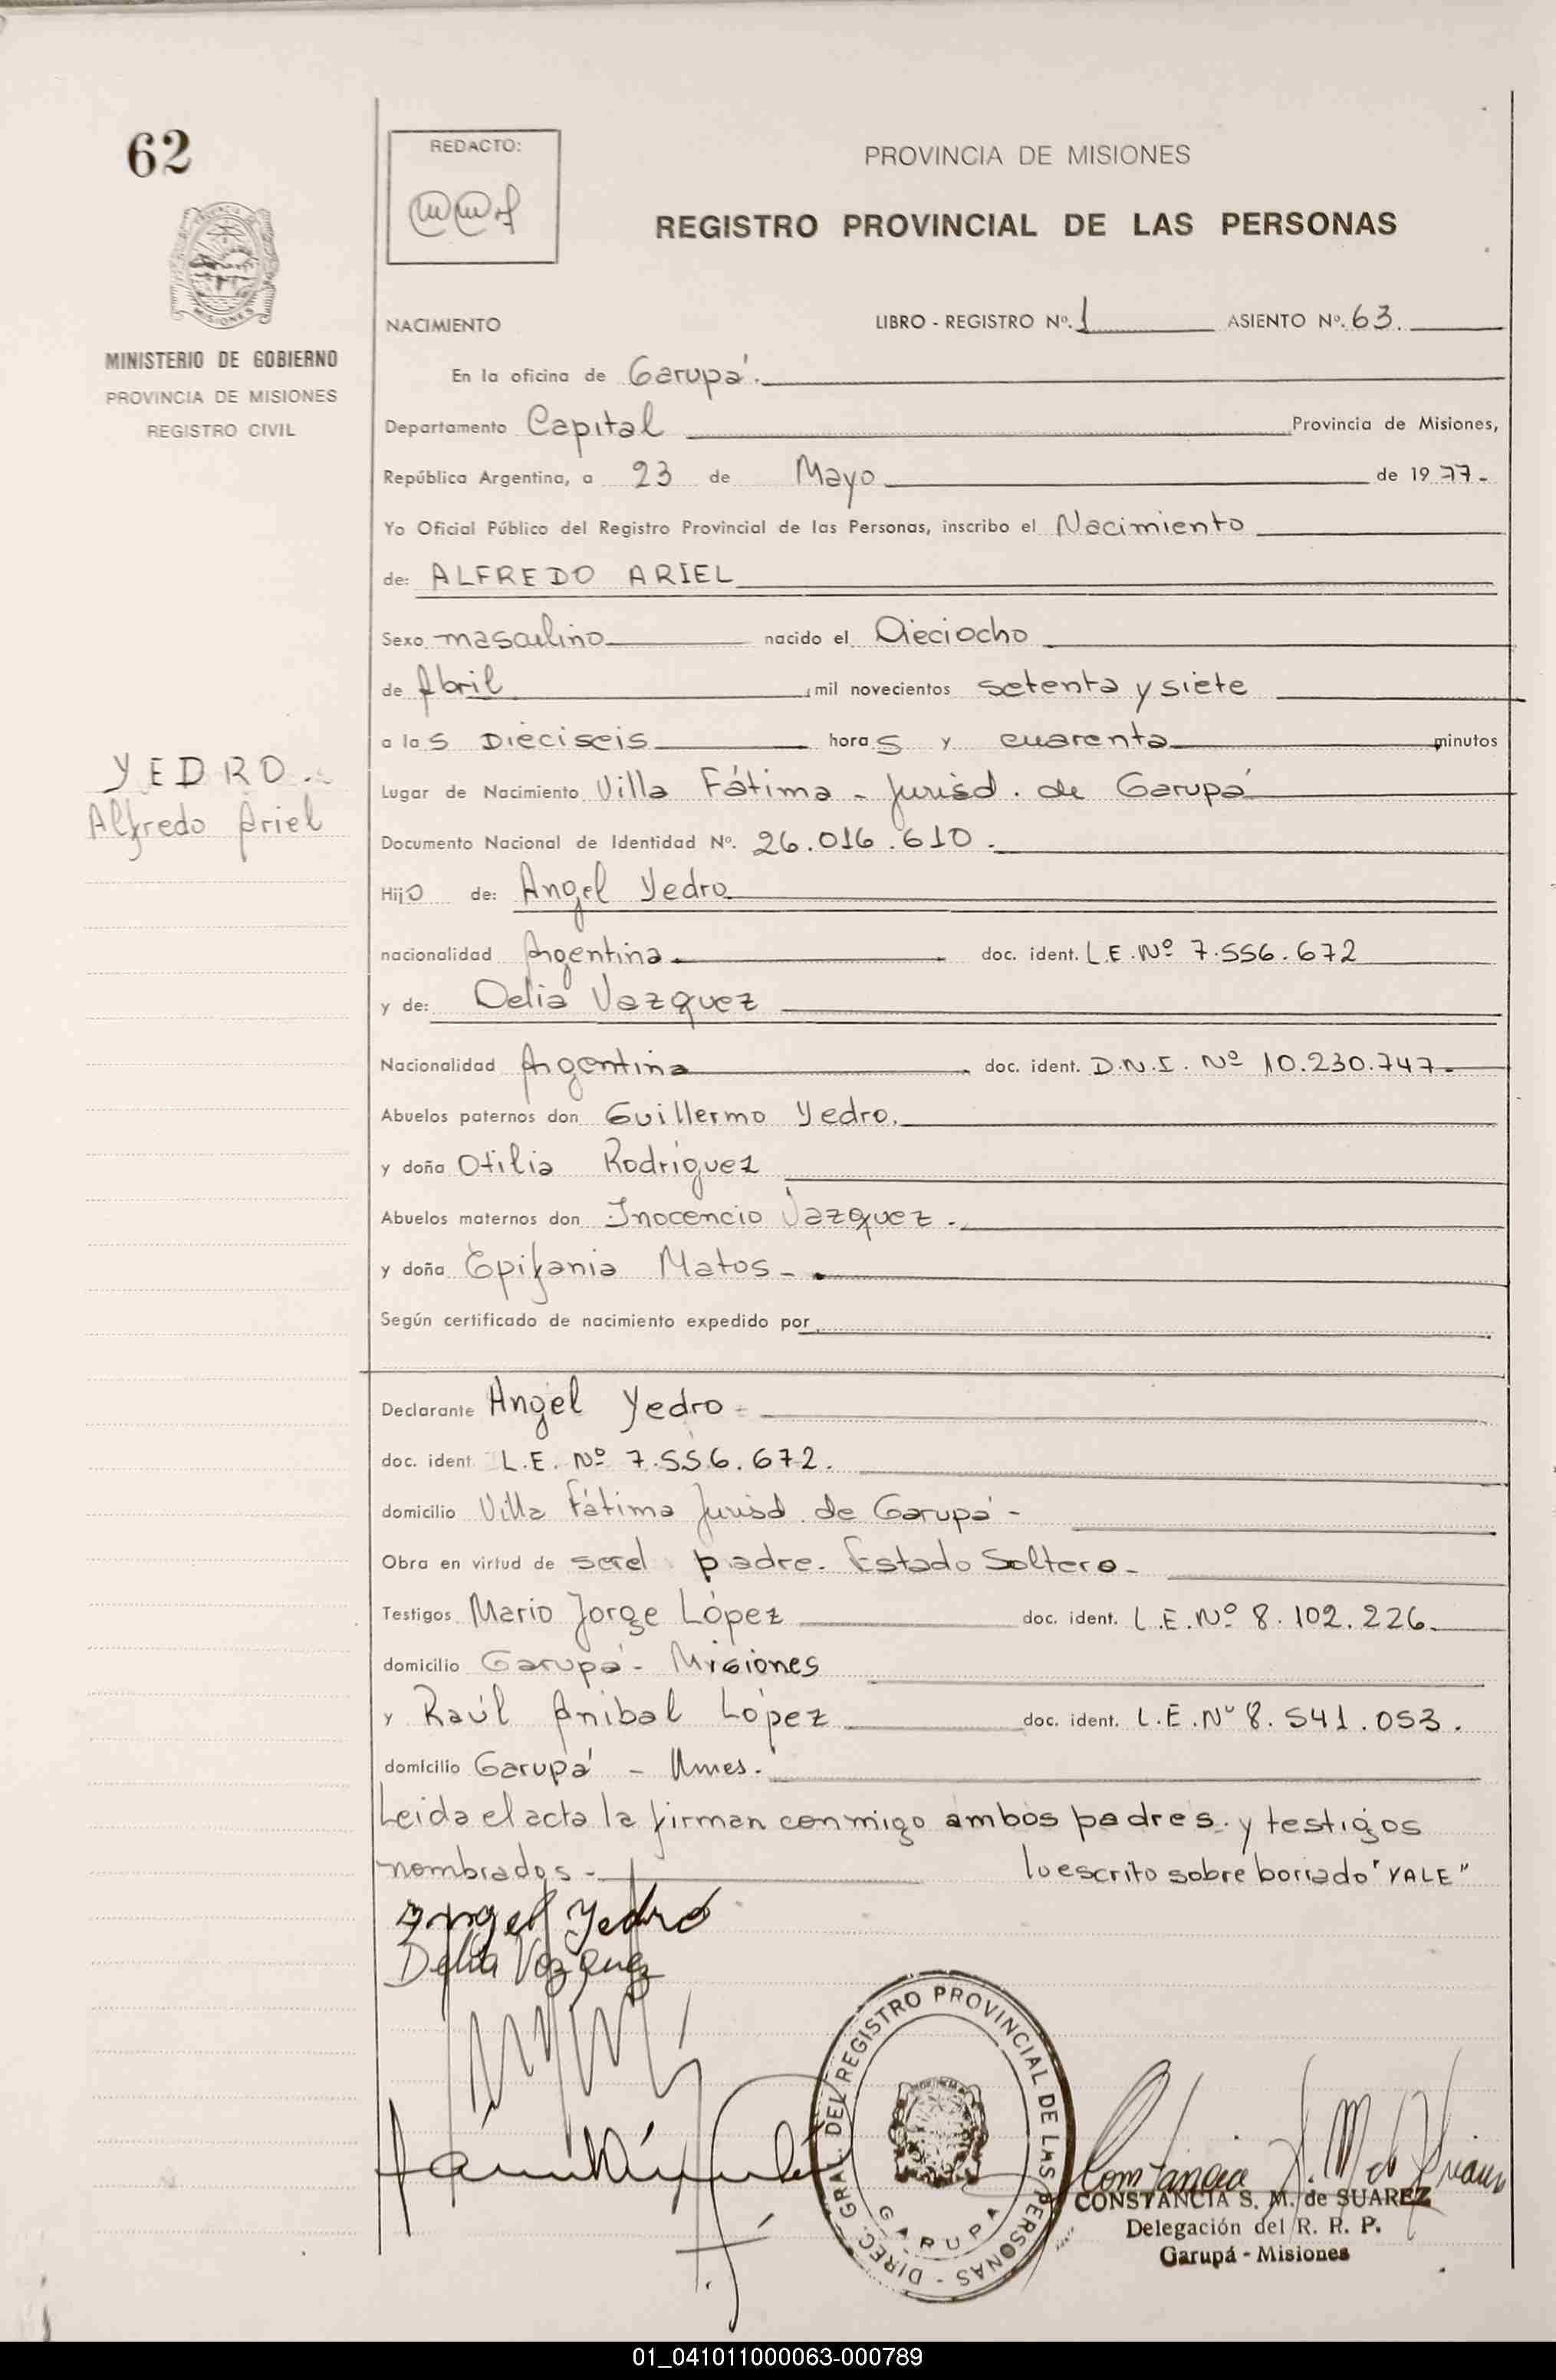 62
REDACTO:
PROVINCIA DE MISIONES
REGISTRO PROVINCIAL DE LAS PERSONAS
MINISTERIO DE GOBIERNO
PROVINCIA DE MISIONES
REGISTRO CIVIL
NACIMIENTO LIBRO - REGISTRO Nº. 1 ASIENTO Nº. 63.
En la oficina de Garupá.
Departamento Capital Provincia de Misiones,
República Argentina, a 23 de Mayo de 1977-
Yo Oficial Público del Registro Provincial de las Personas, inscribo el Nacimiento
de: ALFREDO ARIEL
Sexo masculino nacido el Dieciocho
de Abril mil novecientos setenta y siete
a las Dieciseis horas y cuarenta minutos
YEDRO.
Alfredo Ariel
Lugar de Nacimiento Villa Fátima - Jurisd. de Garupá
Documento Nacional de Identidad Nº. 26.016.610.
Hijo de: Angel Yedro
nacionalidad Argentina doc. ident. L.E.Nº 7.556.672
y de: Delia Vazquez
Nacionalidad Argentina doc. ident. D.N.I. Nº 10.230.747-
Abuelos paternos don Guillermo Yedro.
y doña Otilia Rodriguez
Abuelos maternos don Inocencio Vazquez.
y doña Epifania Matos-
Según certificado de nacimiento expedido por
Declarante Angel Yedro-
doc. ident L.E. Nº 7.556.672.
domicilio Villa Fátima Jurisd. de Garupá-
Obra en virtud de ser el padre. Estado Soltero-
Testigos Mario Jorge López doc. ident. L.E.Nº 8.102.226.
domicilio Garupá- Misiones
y Raúl Anibal López doc. ident. L.E.Nº 8.541.053.
domicilio Garupá - Mnes.
Leida el acta la firman conmigo ambos padres. y testigos
nombrados- lo escrito sobre borrado "VALE"
Angel Yedro
Delia Vazquez
DIREC. GRAL. DEL REGISTRO PROVINCIAL DE LAS PERSONAS -
GARUPA
CONSTANCIA S. M. de SUAREZ
Delegación del R. R. P.
Garupá - Misiones
01_041011000063-000789